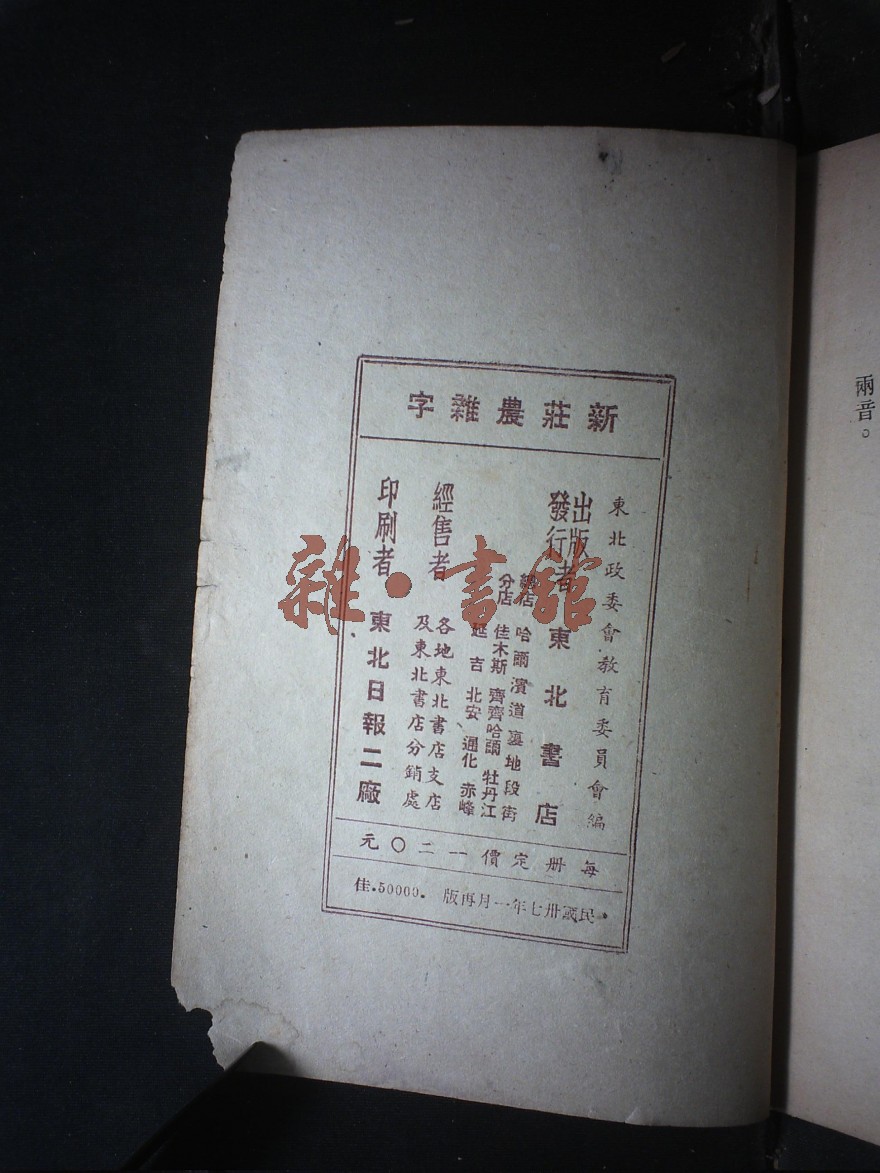 新莊農雜字
東北政委會教育委員會編
出版
發行者 東北書店
總店 哈爾濱道裏地段街
分店 佳木斯 齊齊哈爾 牡丹江
延吉 北安 通化 赤峰
經售者 各地東北書店支店
及東北書店分銷處
印刷者 東北日報二廠
每册定價一二〇元
民國卅七年一月再版.50000.佳
兩音。
雜·書館